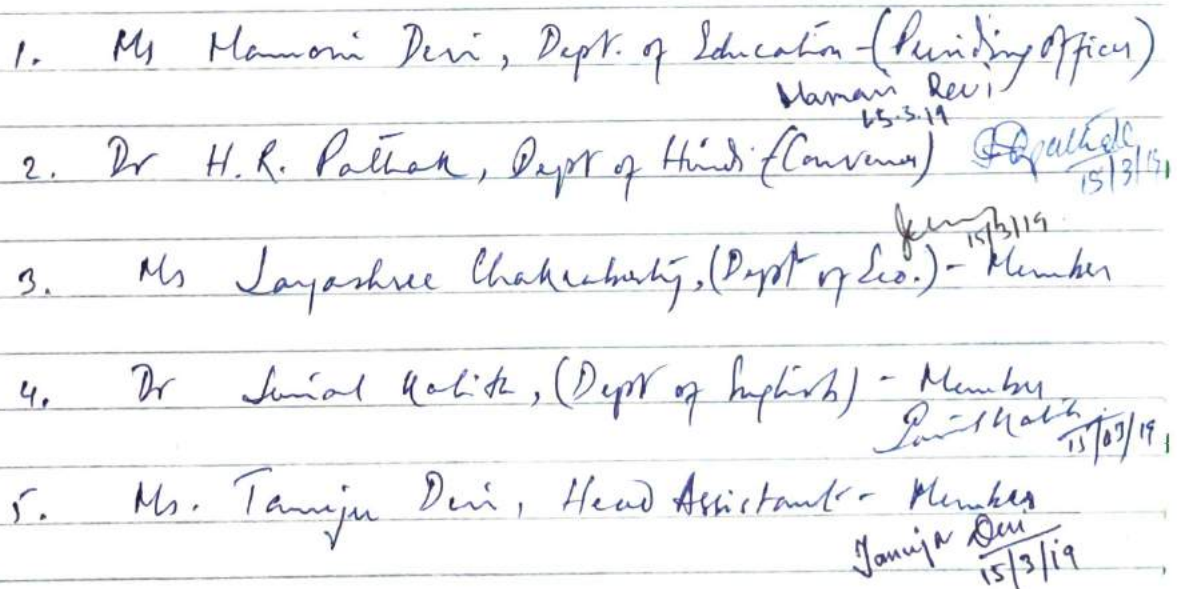 1. Ms Mamoni Devi, Dept. of Education - (Presiding Officer)
Mamani Devi
15.3.19
2. Dr H.R. Pathak, Dept of Hindi - (Convenor)
15/3/19
15/3/19
3. Ms Jayashree Chakraborty, (Dept of Eco.) - Member
4. Dr Kalita, (Dept of English) - Member
15/03/19
5. Ms. Tanuja Devi, Head Assistant - Member
Tanuja Devi
15/3/19